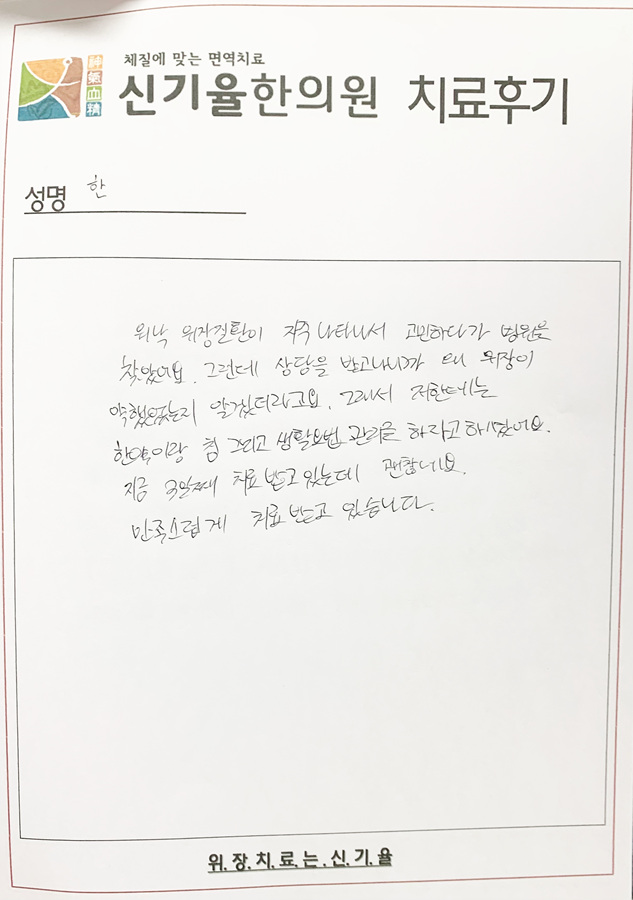 체질에 맞는 면역치료
神氣血精
신기율한의원 치료후기
성명 한
워낙 위장질환이 자주 나타나서 고민하다가 병원을
찾았어요. 그런데 상담을 받고나니까 왜 위장이
약했었는지 알겠더라고요. 그래서 저한테는
한약이랑 침 그리고 생활요법 관리를 하자고 하셨어요.
지금 3일째 치료 받고 있는데 괜찮네요.
만족스럽게 치료 받고 있습니다.
위.장.치.료.는.신.기.율